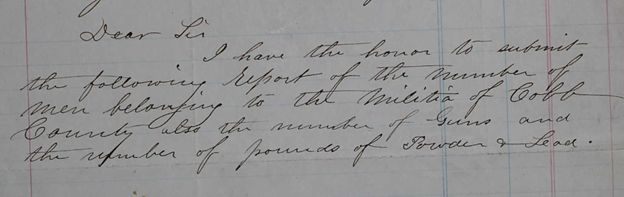 Dear Sir
I have the honor to submit
the following Report of the number of
men belonging to the Militia of Cobb
County also the number of Guns and
the number of pounds of Powder & Lead.